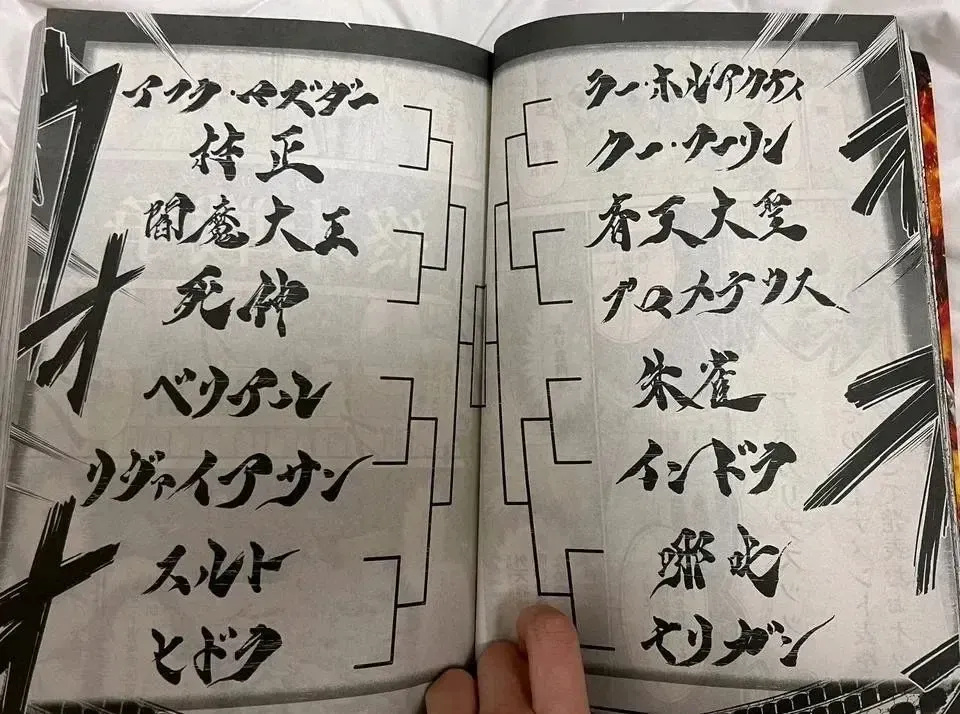 アフラ・マズダー
閻魔大王
死神
ベリアル
リヴァイアサン
スルト
ヒドラ
ラー・ホルアクティ
クー・フーリン
斉天大聖
プロメテウス
朱雀
インドラ
哪吒
モリガン